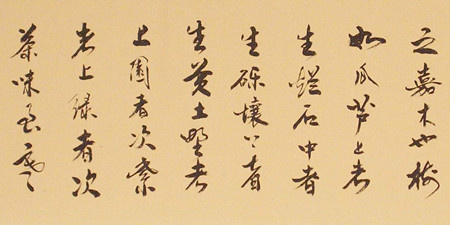 之嘉木也樹
如瓜蘆上者
生爛石中者
生礫壤下者
生黄土野者
上園者次紫
者上緑者次
茶味至寒